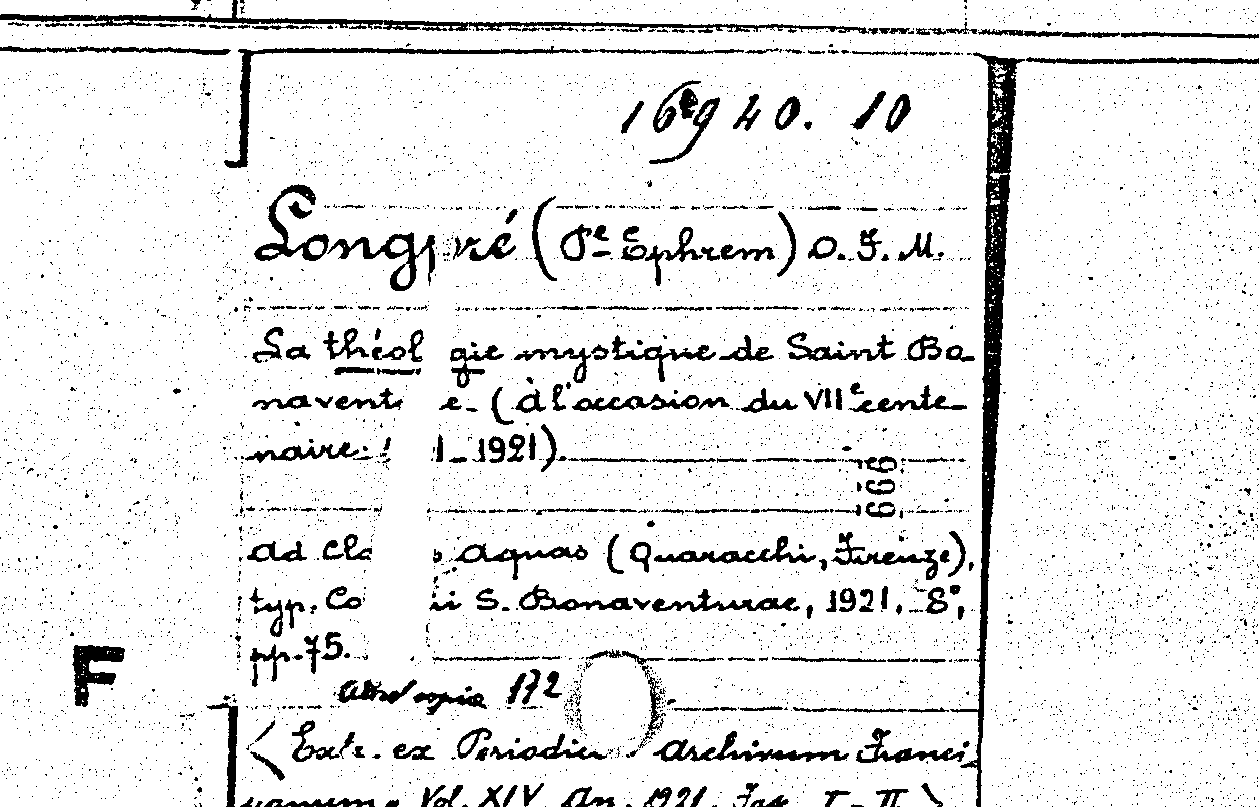 16940. 10
Long ré (Pe Ephrem) O. F. M.
La théol gie mystique de Saint Bo-
navent e. (à l'occasion du VIIe cente-
naire. 1 1-1921).
666
ad Cla s Aquas (Quaracchi, Firenze),
typ. Co ii S. Bonaventurae, 1921. 8°,
pp. 75.
F
altra copia 172
< Extr. ex Periodico Archivum Franci
Vol. XIV. An. 1921. Fas. I-II >